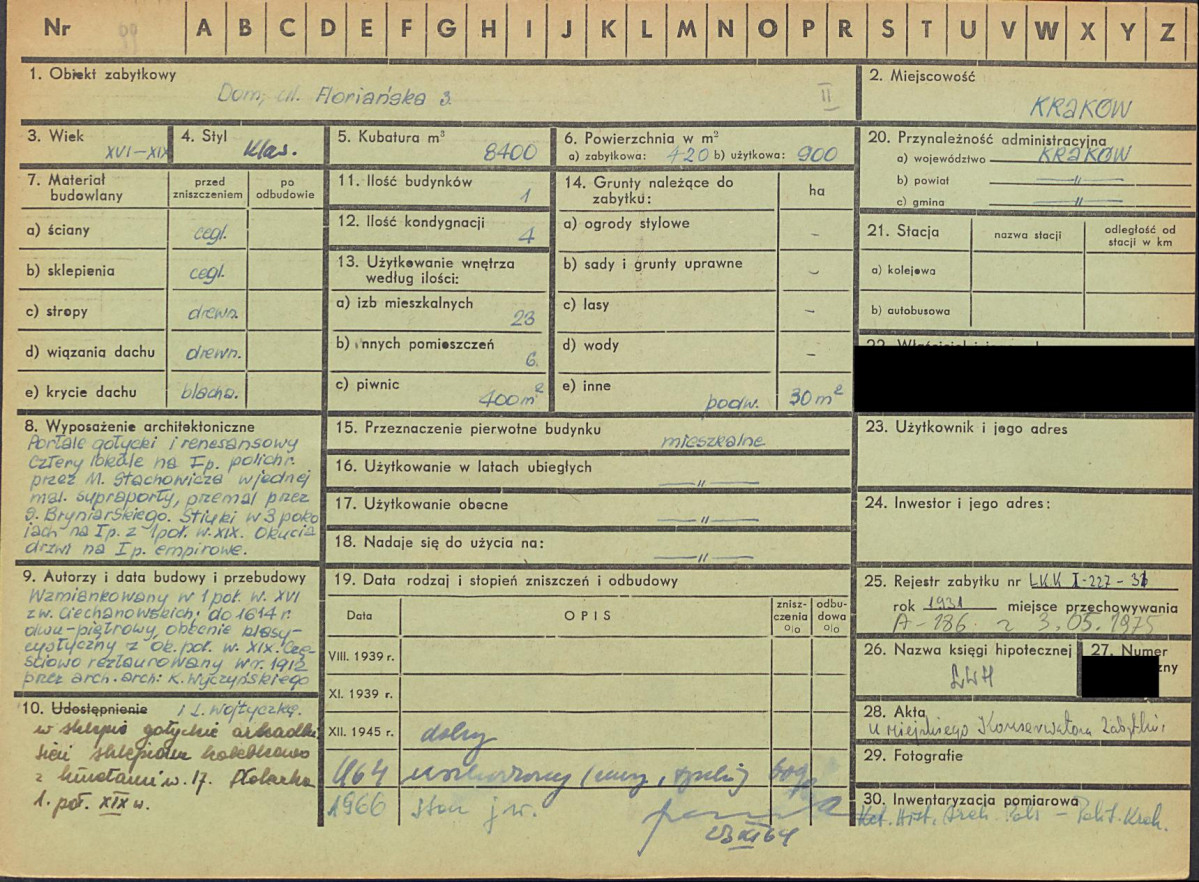 Nr A B C D E F G H I J K L M N O P R S T U V W X Y Z
1. Obiekt zabytkowy
Dom, ul. Floriańska 3.
II
2. Miejscowość
KRAKÓW
3. Wiek
XVI-XIX
4. Styl
klas.
5. Kubatura m³
8400
6. Powierzchnia w m²
a) zabytkowa: 420 b) użytkowa: 900
20. Przynależność administracyjna
a) województwo KRAKÓW
b) powiat —„—
c) gmina —„—
7. Materiał budowlany
przed zniszczeniem
po odbudowie
a) ściany cegl.
b) sklepienia cegl.
c) stropy drewn.
d) wiązania dachu drewn.
e) krycie dachu blacha.
11. Ilość budynków
1
12. Ilość kondygnacji
4
13. Użytkowanie wnętrza
według ilości:
a) izb mieszkalnych
23
b) innych pomieszczeń
6.
c) piwnic
400m²
14. Grunty należące do
zabytku:
ha
a) ogrody stylowe –
b) sady i grunty uprawne –
c) lasy –
d) wody –
e) inne
podw. 30m²
21. Stacja
nazwa stacji
odległość od
stacji w km
a) kolejowa
b) autobusowa
8. Wyposażenie architektoniczne
Portale gotycki i renesansowy
cztery lokale na I p. polichr.
przez M. Stachowicza w jednej
mal. supraporty, przemal przez
S. Bryniarskiego. Stiuki w 3 poko
jach na I p. z 1 poł. w. XIX. Okucia
drzwi na I p. empirowe.
9. Autorzy i data budowy i przebudowy
Wzmiankowany w 1 poł. w. XVI
zw. Ciechanowskich; do 1614 r.
dwu-piętrowy, obecnie klasy-
cystyczny z ok. poł. w. XIX. Czę-
ściowo restaurowany w r. 1912
przez arch. arch: K. Wyczyńskiego
i L. Wojtyczkę.
10. Udostępnienie
w sklepie gotyckie arkadki
sień sklepiona kolebkowo
z lunetami w. 17. Stolarka
1. poł. XIX w.
15. Przeznaczenie pierwotne budynku
mieszkalne
16. Użytkowanie w latach ubiegłych
—„—
17. Użytkowanie obecne
—„—
18. Nadaje się do użycia na:
—„—
19. Data rodzaj i stopień zniszczeń i odbudowy
Data
OPIS
znisz-
czenia
%
odbu-
dowa
%
VIII. 1939 r.
XI. 1939 r.
XII. 1945 r. dobry
1964 uszkodzony
1966 stan j.w.
23 XI 64
23. Użytkownik i jego adres
24. Inwestor i jego adres:
25. Rejestr zabytku nr LKK I-227-31
rok 1931 miejsce przechowywania
A-186 z 3.05.1975
26. Nazwa księgi hipotecznej
LWH
27. Numer
28. Akta
u Miejskiego Konserwatora Zabytków
29. Fotografie
30. Inwentaryzacja pomiarowa
Kat. Hist. Arch. Pols – Polit. Krak.